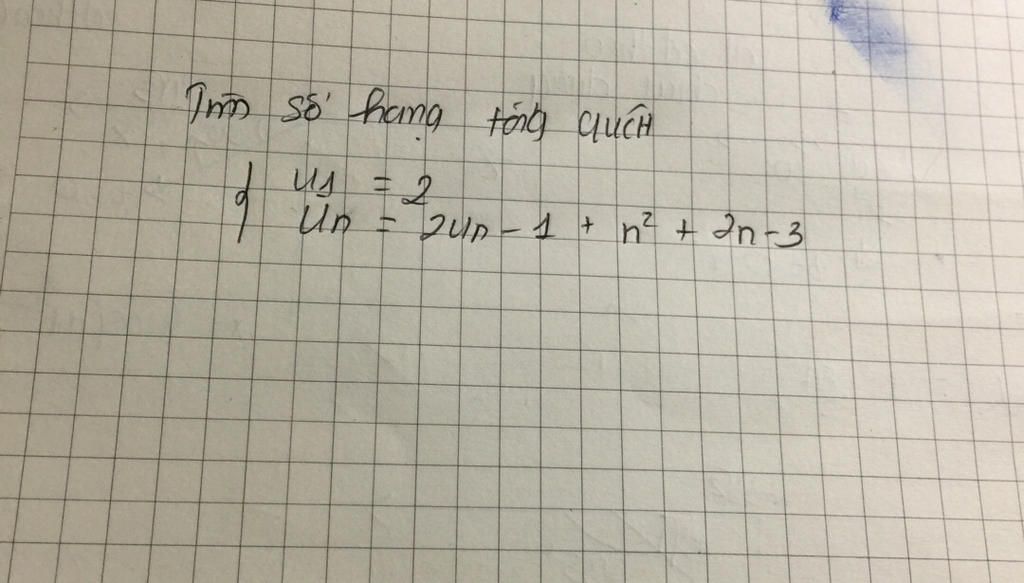 Tìm số hạng tổng quát
{ u1 = 2
Un = 2un - 1 + n² + 2n - 3